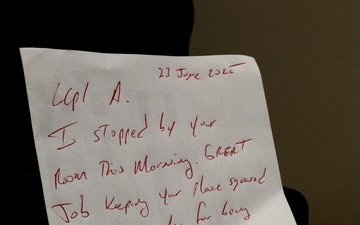 23 June 2025
LCpl A.
I stopped by your
Room This Morning. GREAT
Job Keeping your Place squared
for being